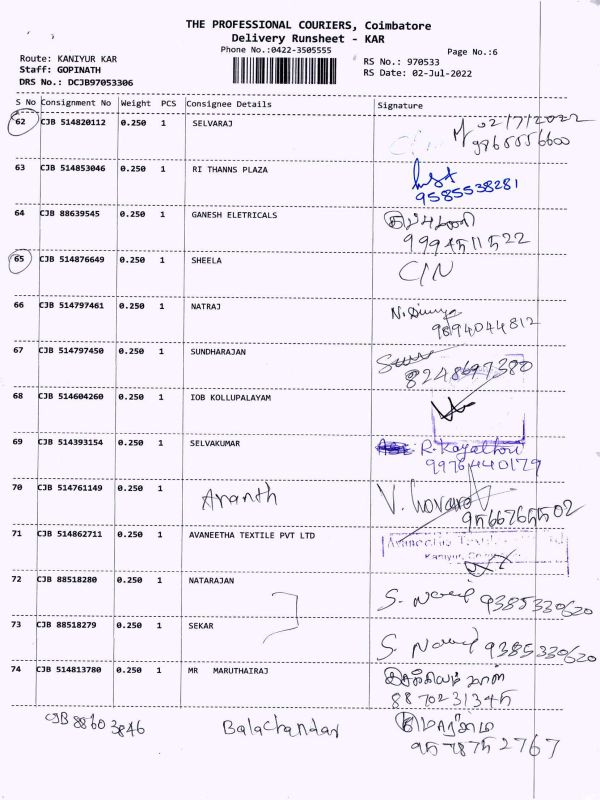 THE PROFESSIONAL COURIERS, Coimbatore
Delivery Runsheet - KAR
Phone No.:0422-3505555
Page No.:6
Route: KANIYUR KAR
Staff: GOPINATH
DRS No.: DCJB97053306
RS No.: 970533
RS Date: 02-Jul-2022
S No Consignment No Weight PCS Consignee Details Signature
62 CJB 514820112 0.250 1 SELVARAJ 02/7/2022
63 CJB 514853046 0.250 1 RI THANNS PLAZA
9585538281
64 CJB 88639545 0.250 1 GANESH ELETRICALS
9994511522
65 CJB 514876649 0.250 1 SHEELA
C/N
66 CJB 514797461 0.250 1 NATRAJ
9694044812
67 CJB 514797450 0.250 1 SUNDHARAJAN
8248697380
68 CJB 514604260 0.250 1 IOB KOLLUPALAYAM
69 CJB 514393154 0.250 1 SELVAKUMAR
9976440179
70 CJB 514761149 0.250 1 Ananth
9566765502
71 CJB 514862711 0.250 1 AVANEETHA TEXTILE PVT LTD
72 CJB 88518280 0.250 1 NATARAJAN
9385330620
73 CJB 88518279 0.250 1 SEKAR
9385330620
74 CJB 514813780 0.250 1 MR MARUTHAIRAJ
8870231345
CJB 88603846 Balachandar
9578752767